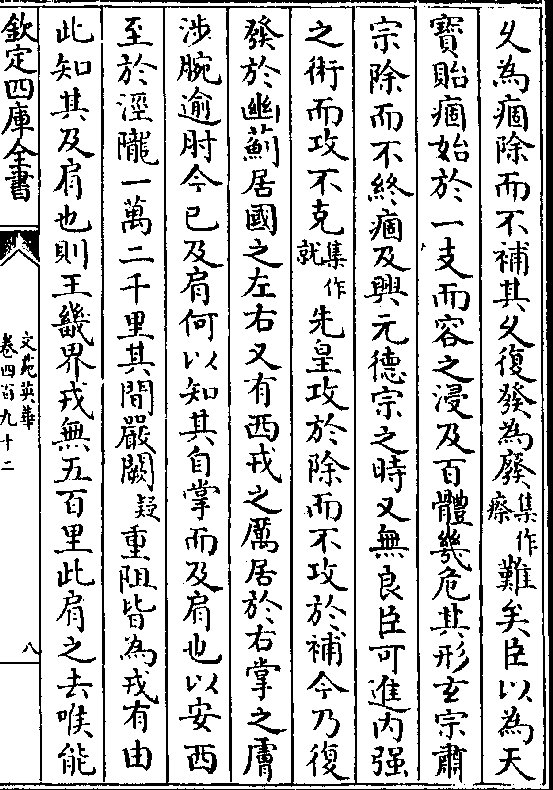 乆為痼除而不補其乆復發為廢集作瘵難矣臣以為天
寶貽痼始於一支而容之浸及百體幾危其形玄宗肅
宗除而不終痼及興元德宗之時又無良臣可進内强
之術而攻不克集作就先皇攻於除而不攻於補今乃復
發於幽薊居國之左右又有西戎之厲居於右掌之膚
涉腕逾肘今已及肩何以知其自掌而及肩也以安西
至於涇隴一萬二千里其間嚴闕疑重阻皆為戎有由
此知其及肩也則王畿界戎無五百里此肩之去喉能
欽定四庫全書
文苑英華
卷四百九十二
八